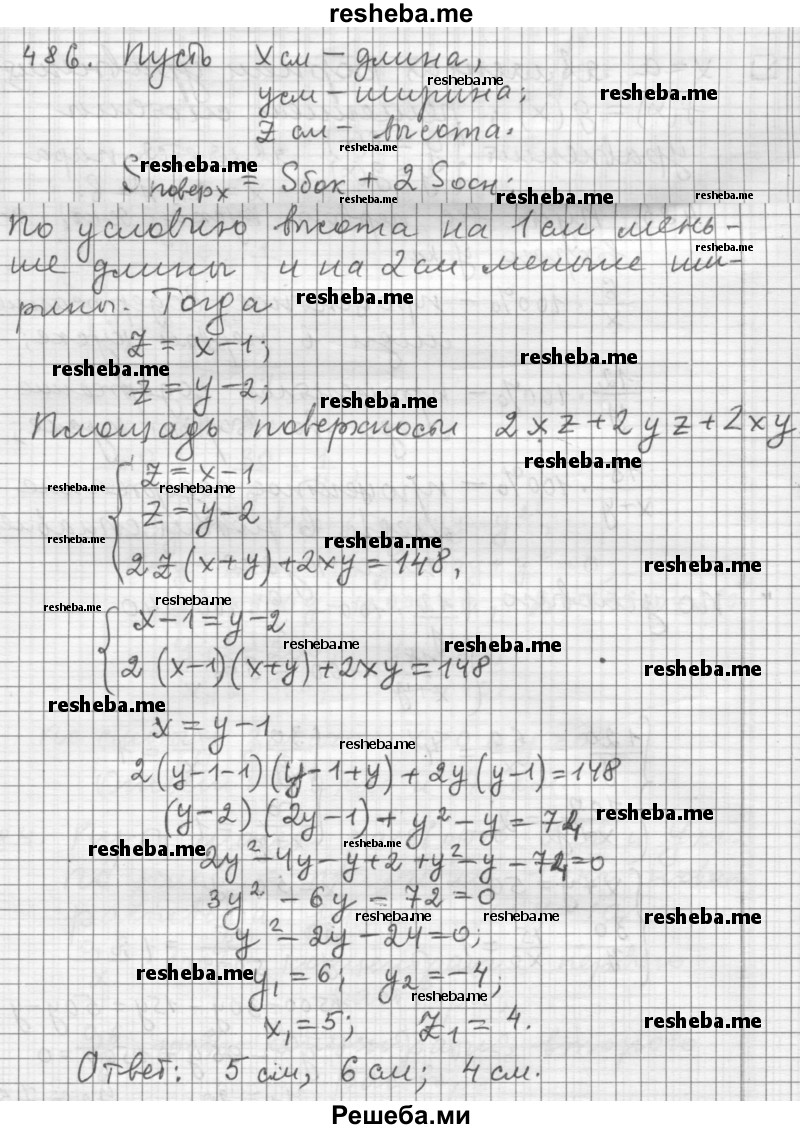 resheba.me
486. Пусть x см – длина,
resheba.me
y см – ширина; resheba.me
z см – высота.
resheba.me
resheba.me
Sповерх = Sбок + 2 Sосн;
resheba.me resheba.me resheba.me
По условию высота на 1 см мень-
resheba.me
ше длины и на 2 см меньше ши-
рины. Тогда resheba.me
z = x – 1;
resheba.me resheba.me
z = y – 2; resheba.me
Площадь поверхности 2xz + 2yz + 2xy
resheba.me
z = x – 1
resheba.me resheba.me
z = y – 2
resheba.me resheba.me
2z(x+y) + 2xy = 148, resheba.me
resheba.me resheba.me
x – 1 = y – 2
resheba.me resheba.me
2(x–1)(x+y) + 2xy = 148 resheba.me
resheba.me
x = y – 1
resheba.me
2(y–1–1)(y–1+y) + 2y(y–1) = 148
(y–2)(2y–1) + y² – y = 74 resheba.me
resheba.me resheba.me
2y² – 4y – y + 2 + y² – y – 74 = 0
3y² – 6y – 72 = 0
resheba.me resheba.me resheba.me
y² – 2y – 24 = 0;
resheba.me y₁ = 6; y₂ = –4;
resheba.me
x₁ = 5; z₁ = 4. resheba.me
Ответ: 5 см, 6 см; 4 см.
Решеба.ми